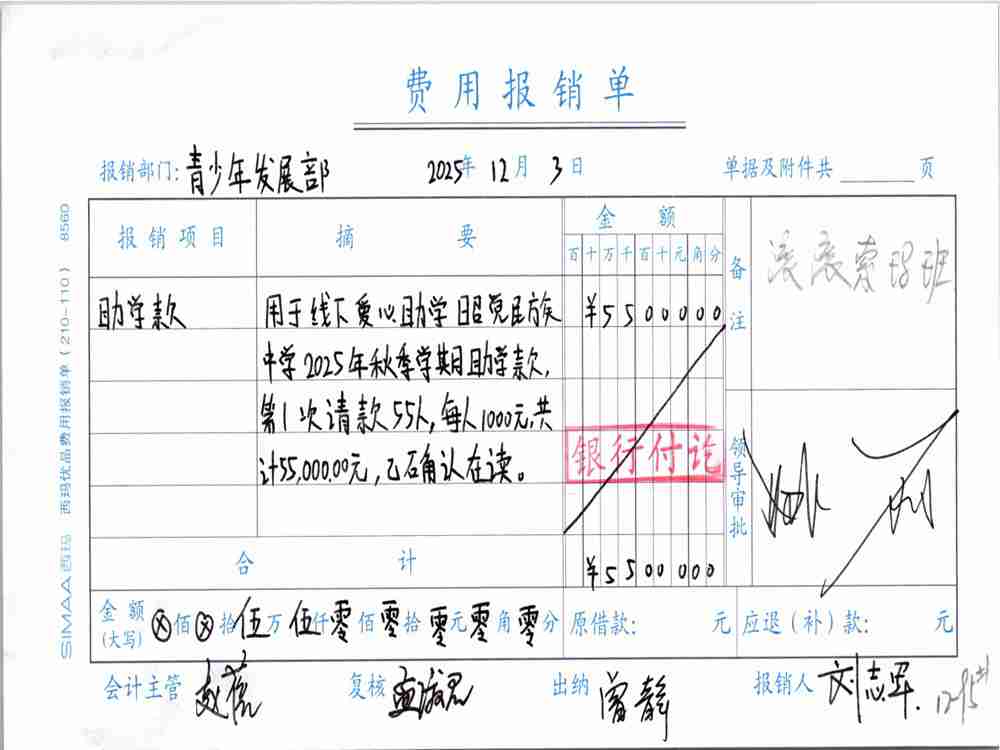 费用报销单
报销部门: 青少年发展部 2025年 12月 3日 单据及附件共 页
报销项目 摘要 金额 备注
百十万千百十元角分
助学款 用于线下爱心助学昭觉民族 ¥5500000
中学2025年秋季学期助学款,
第1次请款55人,每人1000元,共
计55,000.00元,已确认在读。
银行付讫
滚滚索玛班
领导审批
合计 ¥5500000
金额(大写) ⊗佰⊗拾伍万伍仟零佰零拾零元零角零分 原借款: 元 应退(补)款: 元
会计主管 复核 出纳 曾静 报销人 刘志军
SIMAA西玛 西玛优品费用报销单(210-110) 8560